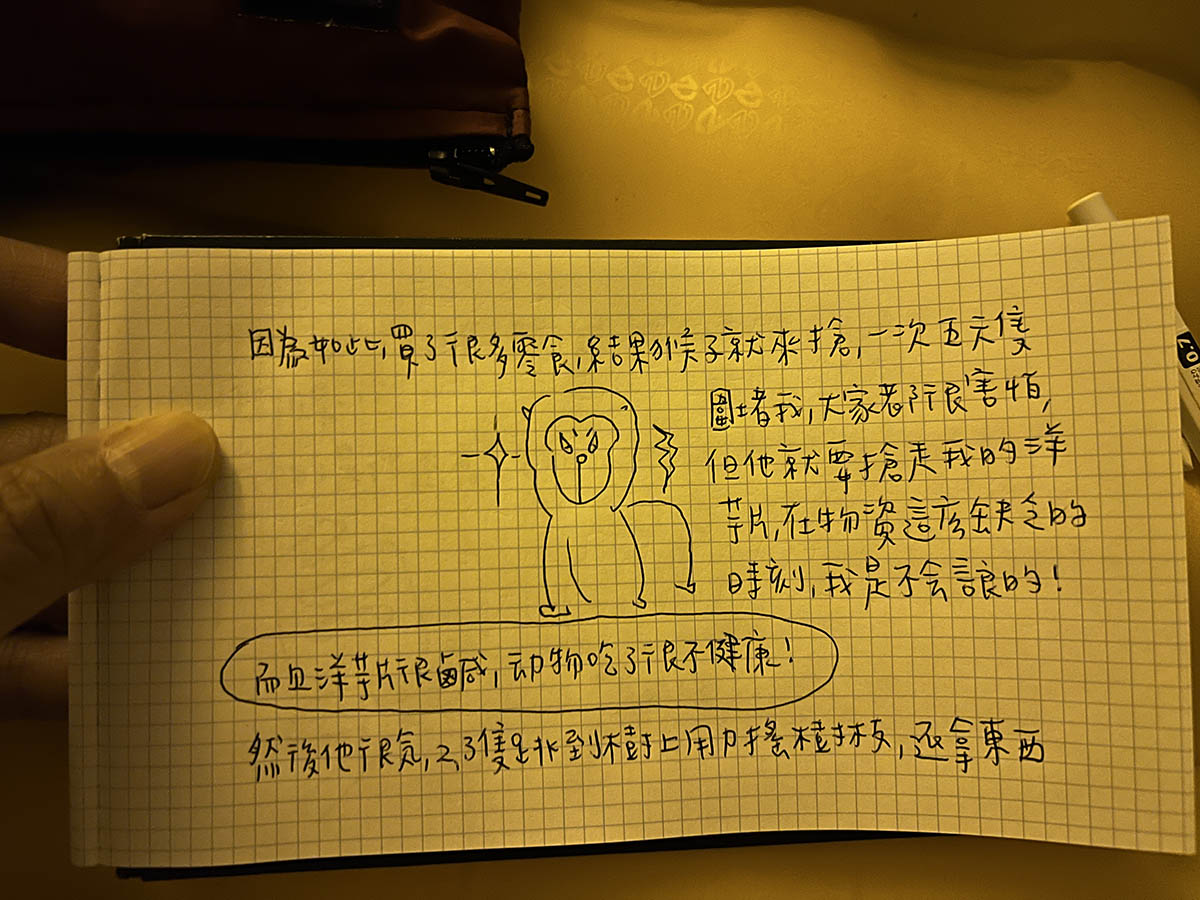 因為如此,買了很多零食,結果猴子就來搶,一次五六隻
圍堵我,大家都很害怕,
但他就要搶走我的洋
芋片,在物資這広缺乏的
時刻,我是不会讓的!
而且洋芋片很鹹,动物吃了很不健康!
然後他很気,2,3隻跳到樹上用力搖樹枝,还拿東西